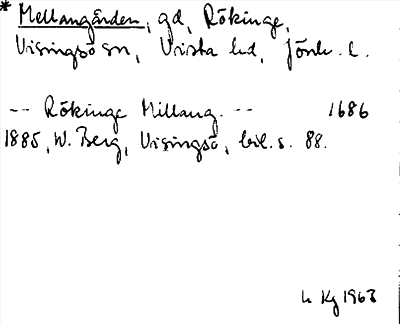 * Mellangården, gd, Rökinge,
Visingsö sn, Vista hd, Jönk. l.
-- Rökinge Millang. -- 1686
1885, W. Berg, Visingsö, bil. s. 88.
h Kg 1963